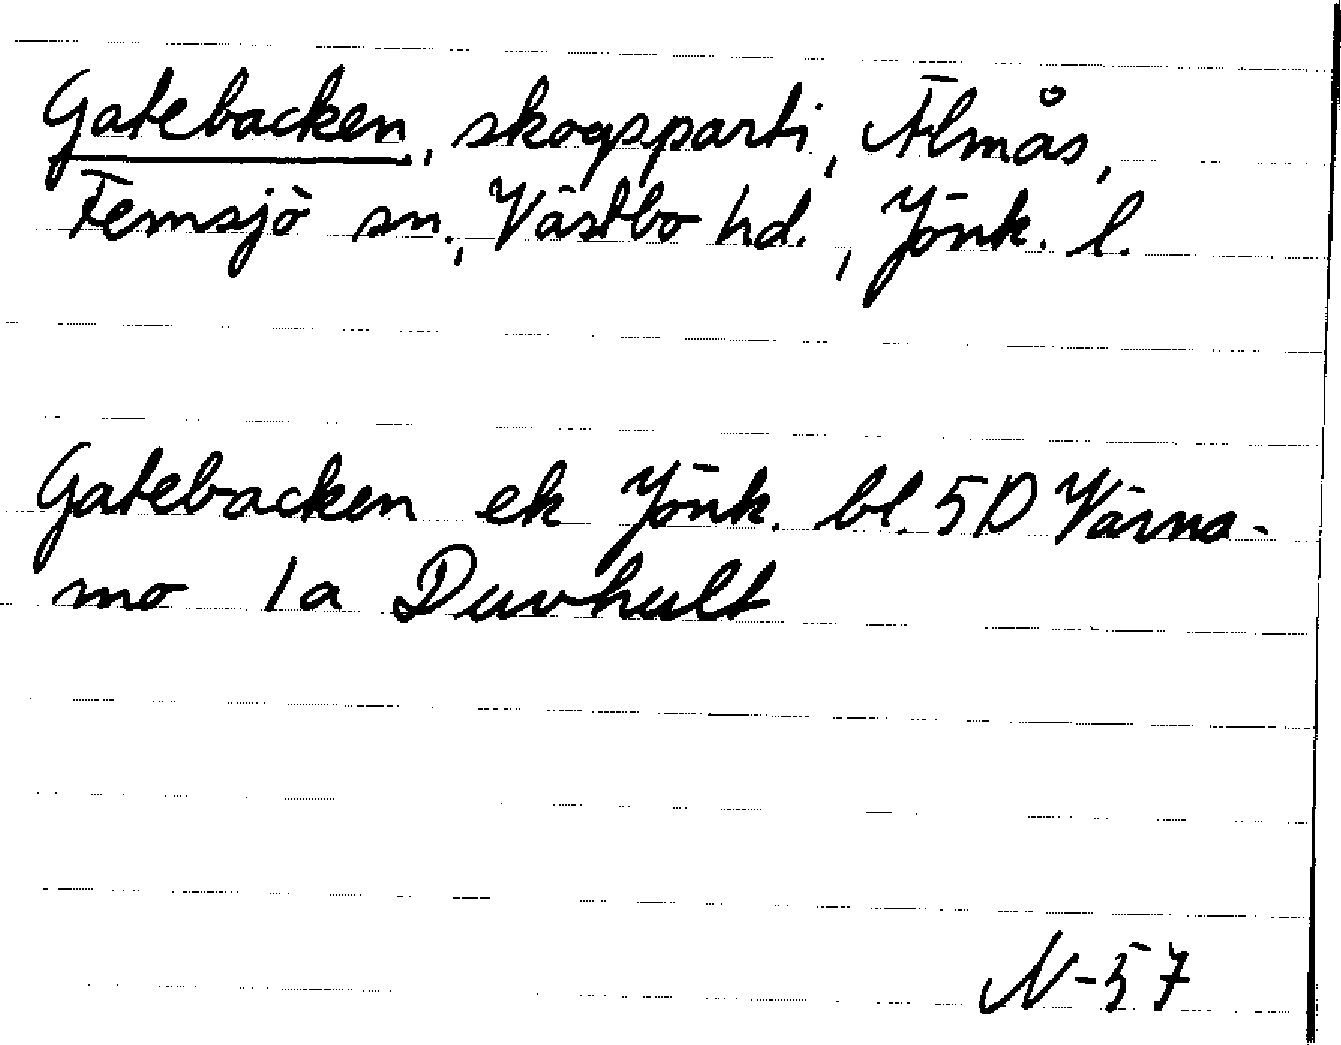 Gatebacken, skogsparti, Älmås,
Femsjö sn., Västbo hd., Jönk. l.
Gatebacken ek Jönk. bl. 5D Värna-
mo 1a Duvhult
N-57